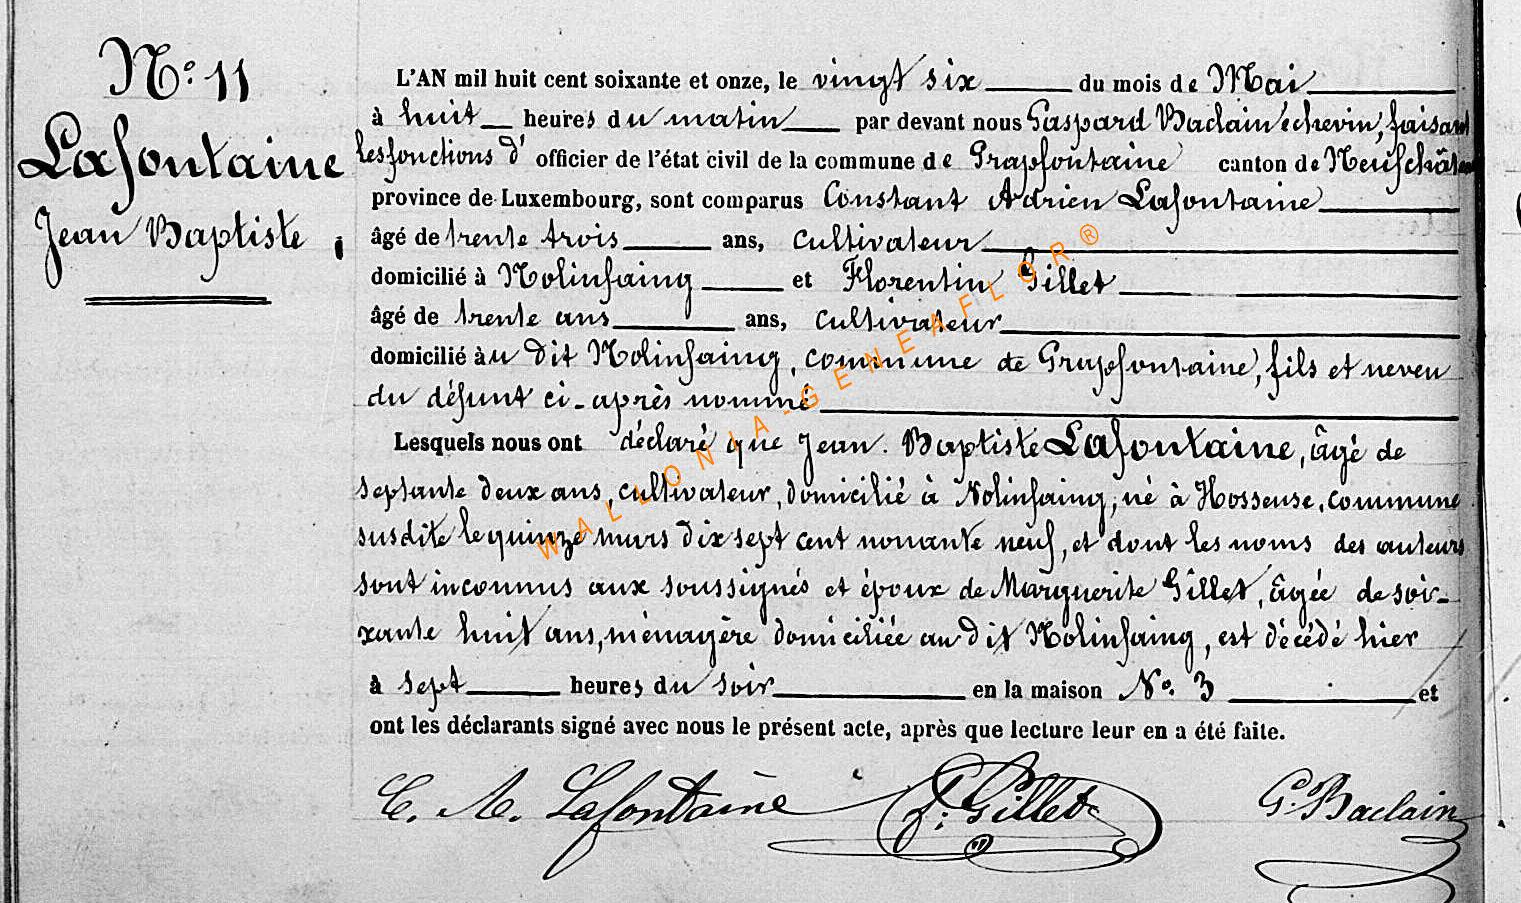 N° 11
Lafontaine
Jean Baptiste
L'AN mil huit cent soixante et onze, le vingt six du mois de Mai
à huit heures du matin par devant nous Gaspard Baclain échevin, faisant
les fonctions d' officier de l'état civil de la commune de Grapfontaine canton de Neufchâteau
province de Luxembourg, sont comparus Constant Adrien Lafontaine
âgé de trente trois ans, cultivateur
domicilié à Nolinfaing et Florentin Gillet
âgé de trente ans ans, cultivateur
domicilié au dit Nolinfaing, commune de Grapfontaine, fils et neveu
du défunt ci-après nommé
Lesquels nous ont déclaré que Jean Baptiste Lafontaine, âgé de
septante deux ans, cultivateur, domicilié à Nolinfaing, né à Hosseuse, commune
susdite le quinze mars dix sept cent nonante neuf, et dont les noms des auteurs
sont inconnus aux soussignés et époux de Marguerite Gillet, âgée de soi-
xante huit ans, ménagère domiciliée au dit Nolinfaing, est décédé hier
à sept heures du soir en la maison N° 3 et
ont les déclarants signé avec nous le présent acte, après que lecture leur en a été faite.
C. A. Lafontaine F. Gillet G. Baclain
WALLONIA-GENEAFLOR®